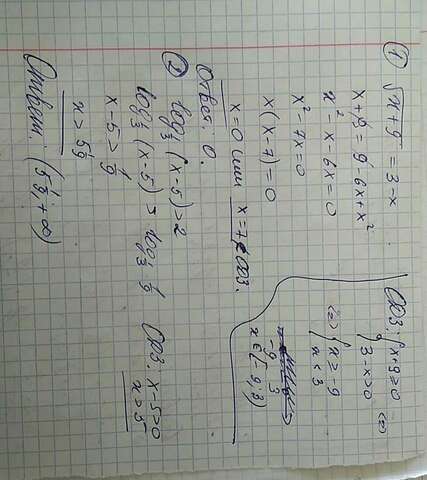 ① √x+9 = 3-x
x+9 = 9-6x+x²
x²-x-6x=0
x²-7x=0
x(x-7)=0
x=0 или x=7∉ОДЗ.
Ответ: 0.
ОДЗ: { x+9≥0 (=)
3-x>0
(=) { x≥-9
x<3
-9 3
x∈[-9;3)
② log⅓(x-5)>2
log⅓(x-5) > log⅓ 1/9
x-5>1/9
x>5 1/9
ОДЗ: x-5>0
x>5
Ответ: (5 1/9; +∞)